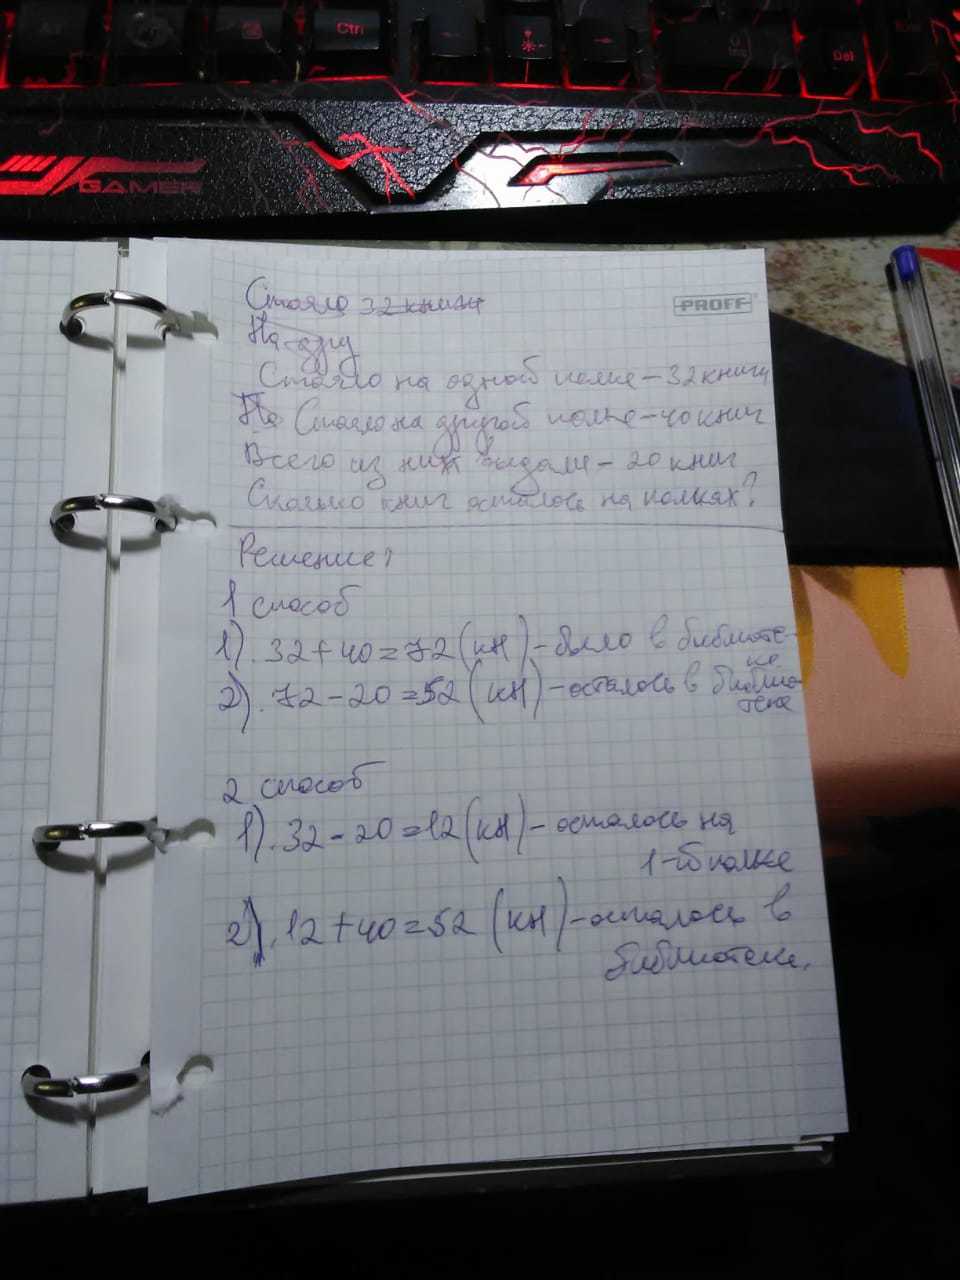 Ctrl
Del
GAMER
PROFF
Стояло 32 книги
На
Стояло на одной полке – 32 книги
На Стояло на другой полке – 40 книг
Всего из них выдали – 20 книг
Сколько книг осталось на полках?
Решение:
1 способ
1). 32+40=72 (кн) – было в библиоте-
ке
2). 72-20=52 (кн) – осталось в библио-
теке
2 способ
1). 32-20=12 (кн) – осталось на
1-ой полке
2). 12+40=52 (кн) – осталось в
библиотеке.